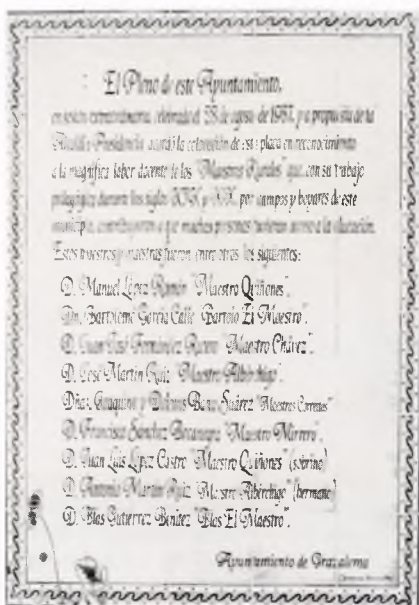 El Pleno de este Ayuntamiento,
en sesión extraordinaria celebrada el 28 de agosto de 1987, y a propuesta de la
Alcaldía-Presidencia acordó la colocación de esta placa en reconocimiento
a la magnífica labor docente de los "Maestros Rurales" que, con su trabajo
pedagógico durante los siglos XIX y XX, por campos y hogares de este
municipio, contribuyeron a que muchas personas tuvieran acceso a la educación.
Estos maestros y maestras fueron entre otros los siguientes:
D. Manuel López Ramón "Maestro Quiñones".
Dn. Bartolomé García Calle "Bartolo El Maestro".
D. Juan José Fernández "Maestro Chávez".
D. José Martín Ruiz "Maestro Alberchigo".
Dñas. y Dolores Suárez "Maestras Correas".
D. Francisco Sánchez "Maestro Morrero".
D. Juan Luis López Castro "Maestro Quiñones" (sobrino)
D. Antonio Martín Ruiz "Maestro Alberchigo" (hermano)
D. Blas Gutiérrez Benítez "Blas El Maestro".
Ayuntamiento de Grazalema